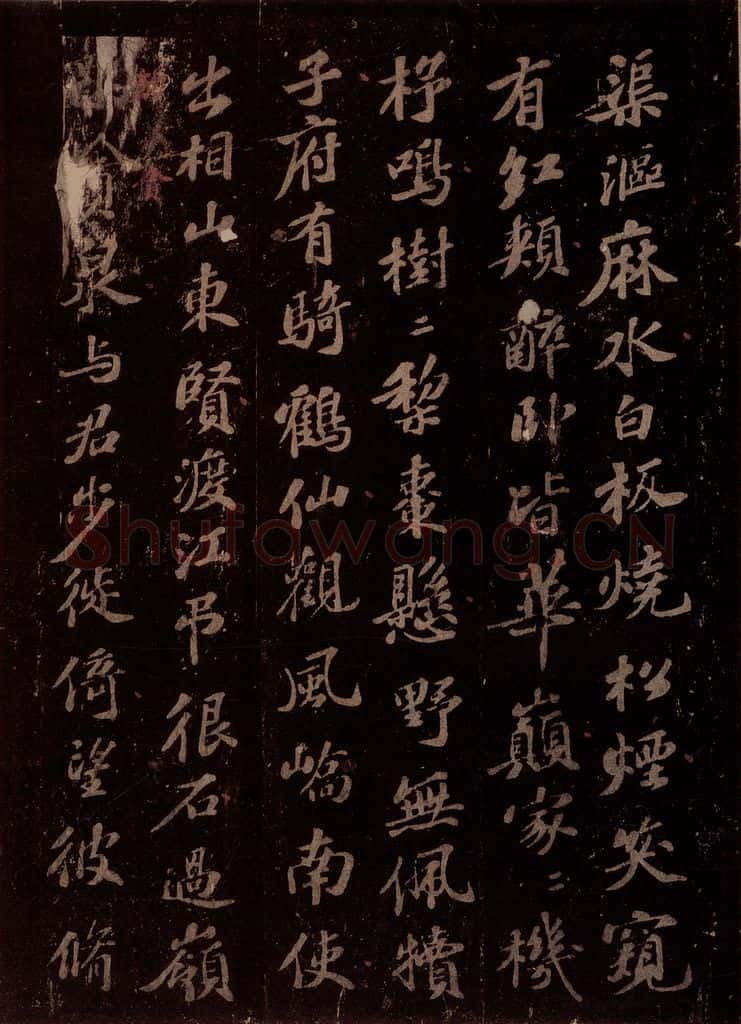 渠漚麻水白板燒松煙笑窺
有紅頰醉臥皆華巔家〻機
杼鳴樹〻黎棗懸野無佩犢
子府有騎鶴仙觀風嶠南使
出相山東賢渡江吊很石過嶺
貪泉与君步徙倚望彼脩
Shufawang.CN